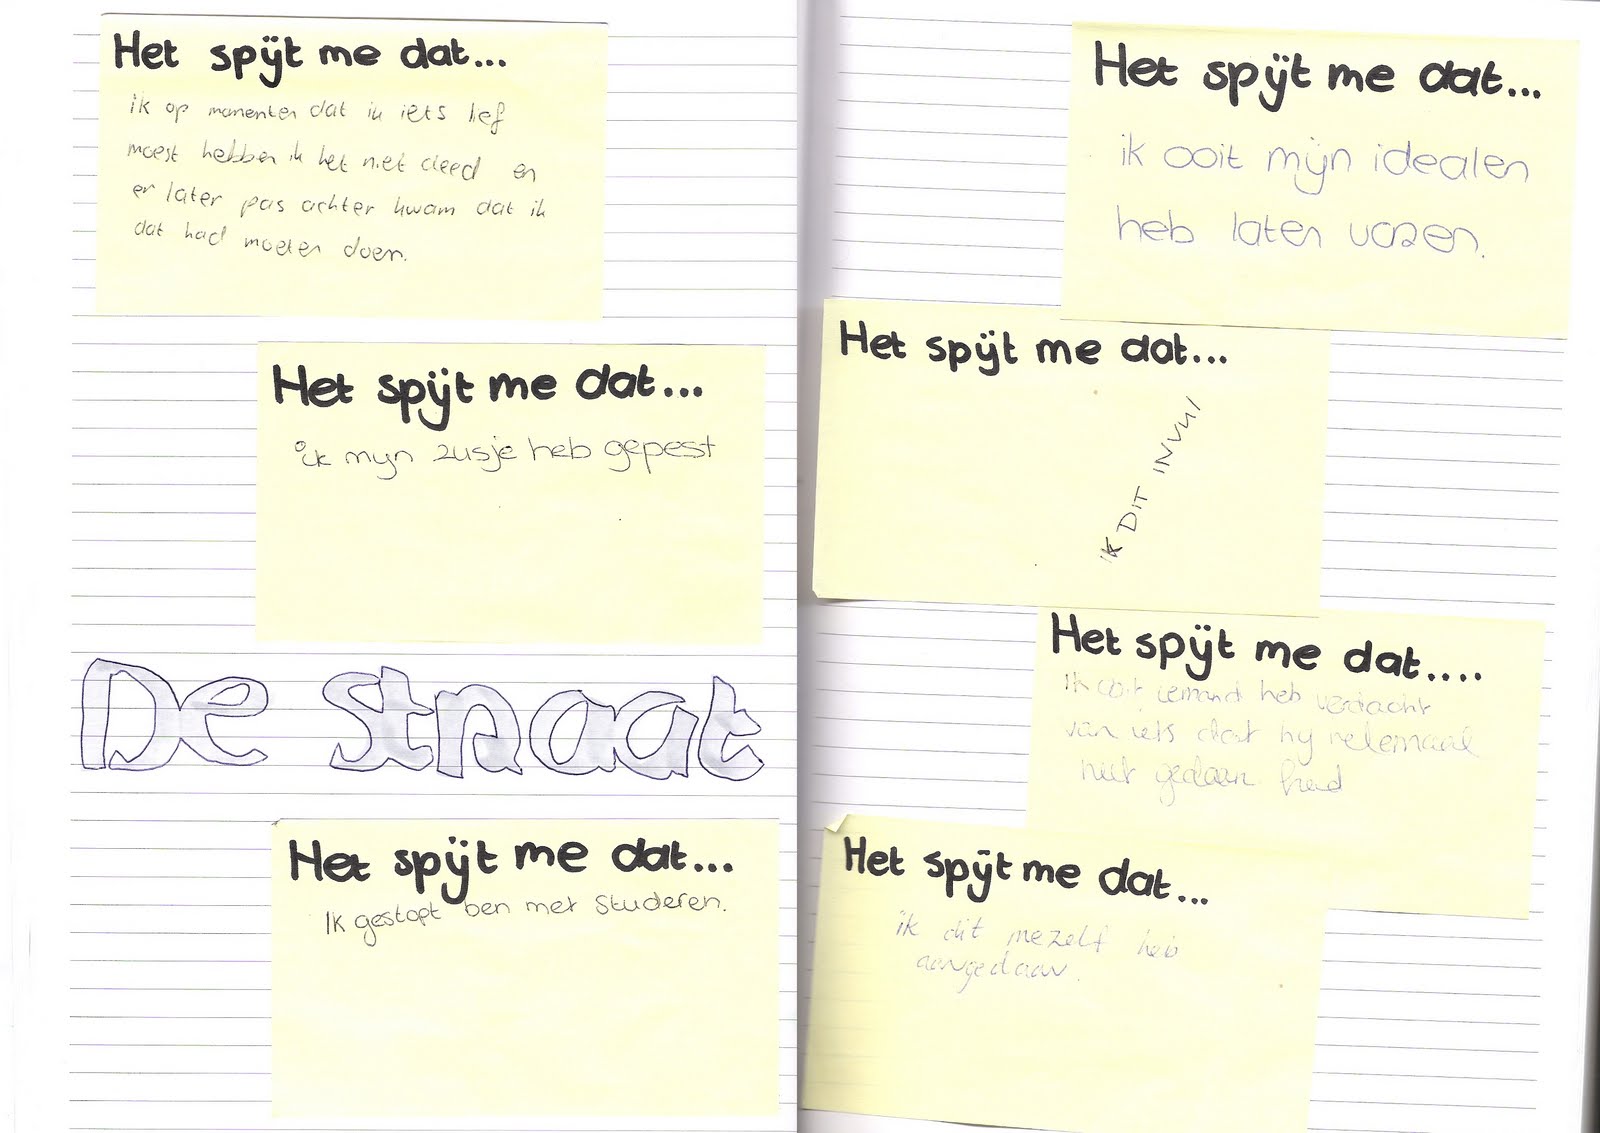 Het spijt me dat...
ik op momenten dat ik iets lief
moest hebben ik het niet deed en
er later pas achter kwam dat ik
dat had moeten doen.
Het spijt me dat...
ik mijn zusje heb gepest
De straat
Het spijt me dat...
Ik gestopt ben met studeren.
Het spijt me dat...
ik ooit mijn idealen
heb laten varen.
Het spijt me dat...
IK DIT INVUL
Het spijt me dat....
Ik ooit iemand heb verdacht
van iets dat hij helemaal
niet gedaan had
Het spijt me dat...
ik dit mezelf heb
aangedaan.